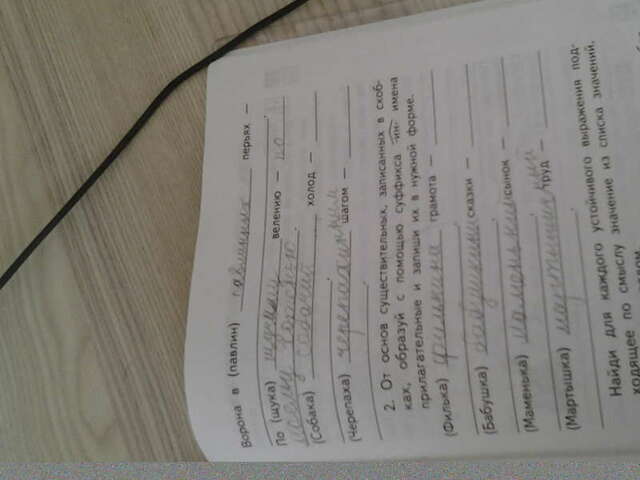 Ворона в (павлин) павлиньих перьях —
По (щука) щучьему велению — по
моему хотению
(Собака) собачий холод —
(Черепаха) черепашьим шагом —
2. От основ существительных, записанных в скоб-
ках, образуй с помощью суффикса -ин- имена
прилагательные и запиши их в нужной форме.
(Филька) филькина грамота —
(Бабушка) бабушкины сказки —
(Маменька) маменькин сынок —
(Мартышка) мартышкин труд —
Найди для каждого устойчивого выражения под-
ходящее по смыслу значение из списка значений.